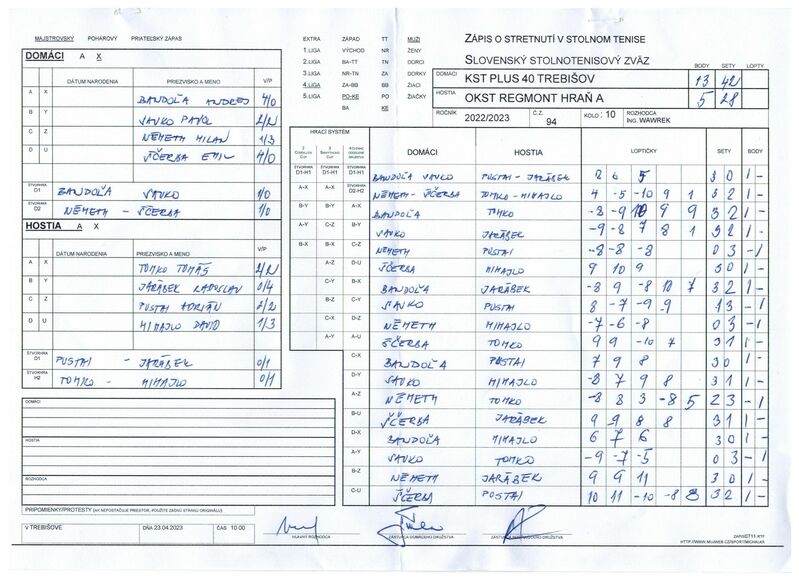 MAJSTROVSKÝ POHÁROVÝ PRIATEĽSKÝ ZÁPAS
DOMÁCI A X
DÁTUM NARODENIA PRIEZVISKO A MENO V/P
A X BANDOĽA ANDREJ 4/0
B Y SAVKO PAVOL 2/2
C Z NÉMETH MILAN 1/3
D U ŠČERBA EMIL 4/0
ŠTVORHRA D1 BANDOĽA SAVKO 1/0
ŠTVORHRA D2 NÉMETH - ŠČERBA 1/0
HOSTIA A X
DÁTUM NARODENIA PRIEZVISKO A MENO V/P
A X TOMKO TOMÁŠ 2/2
B Y JARÁBEK RADOSLAV 0/4
C Z PUSTAI ADRIÁN 2/2
D U MIHAJLO DAVID 1/3
ŠTVORHRA D1 PUSTAI - JARÁBEK 0/1
ŠTVORHRA H2 TOMKO - MIHAJLO 0/1
DOMÁCI
HOSTIA
ROZHODCA
PRIPOMIENKY/PROTESTY (AK NEPOSTAČUJE PRIESTOR, POUŽITE ZADNÚ STRANU ORIGINÁLU)
V TREBIŠOVE DŇA 23.04.2023 ČAS 10:00
HLAVNÝ ROZHODCA
EXTRA ZÁPAD TR MUŽI
1.LIGA VÝCHOD NR ŽENY
2.LIGA BA-TT TN DORCI
3.LIGA NR-TN ZA DORKY
4.LIGA ZA-BB BB ŽIACI
5.LIGA PO-KE PO ŽIAČKY
BA KE
ZÁPIS O STRETNUTÍ V STOLNOM TENISE
SLOVENSKÝ STOLNOTENISOVÝ ZVÄZ
BODY SETY LOPTY
DOMÁCI KST PLUS 40 TREBIŠOV 13 42
HOSTIA OKST REGMONT HRAŇ A 5 28
ROČNÍK 2022/2023 Č.Z. 94 KOLO: 10 ROZHODCA ING. WAWREK
HRACÍ SYSTÉM
DOMÁCI HOSTIA LOPTIČKY SETY BODY
ŠTVORHRA D1-H1 ŠTVORHRA D1-H1 ŠTVORHRA D1-H1 BANDOĽA SAVKO PUSTAI - JARÁBEK 2 6 5 3 0 1 -
A-X A-X ŠTVORHRA D2-H2 NÉMETH - ŠČERBA TOMKO - MIHAJLO 4 -5 -10 9 1 3 2 1 -
B-Y B-Y A-X BANDOĽA TOMKO -8 -9 10 9 9 3 2 1 -
A-Y C-Z B-Y SAVKO JARÁBEK -9 -8 7 8 1 3 2 1 -
B-X B-X C-Z NÉMETH PUSTAI -8 -8 -8 0 3 - 1
A-Z D-U ŠČERBA MIHAJLO 9 10 9 3 0 1 -
C-Y B-X BANDOĽA JARÁBEK 8 -9 -8 10 7 3 2 1 -
B-Z C-Y SAVKO PUSTAI 8 -7 -9 -9 1 3 - 1
C-X D-Z NÉMETH MIHAJLO -7 -6 -8 0 3 - 1
A-Y A-U ŠČERBA TOMKO 9 9 -10 7 3 1 1 -
C-X BANDOĽA PUSTAI 7 9 8 3 0 1 -
D-Y SAVKO MIHAJLO -8 7 9 8 3 1 1 -
A-Z NÉMETH TOMKO -8 8 3 -8 5 2 3 - 1
B-U ŠČERBA JARÁBEK 9 9 8 8 3 1 1 -
D-X BANDOĽA MIHAJLO 6 7 6 3 0 1 -
A-Y SAVKO TOMKO -9 -7 -5 0 3 - 1
B-Z NÉMETH JARÁBEK 9 9 11 3 0 1 -
C-U ŠČERBA PUSTAI 10 11 -10 -8 8 3 2 1 -
ZÁPISST11.RTF
HTTP://WWW.MUJWEB.CZ/SPORT/MICHALKA